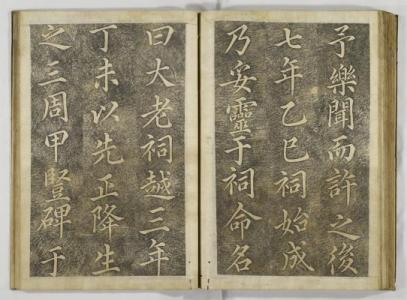 予樂聞而許之後
七年乙巳祠始成
乃妥靈于祠命名
曰大老祠越三年
丁未以先正降生
之三周甲豎碑于